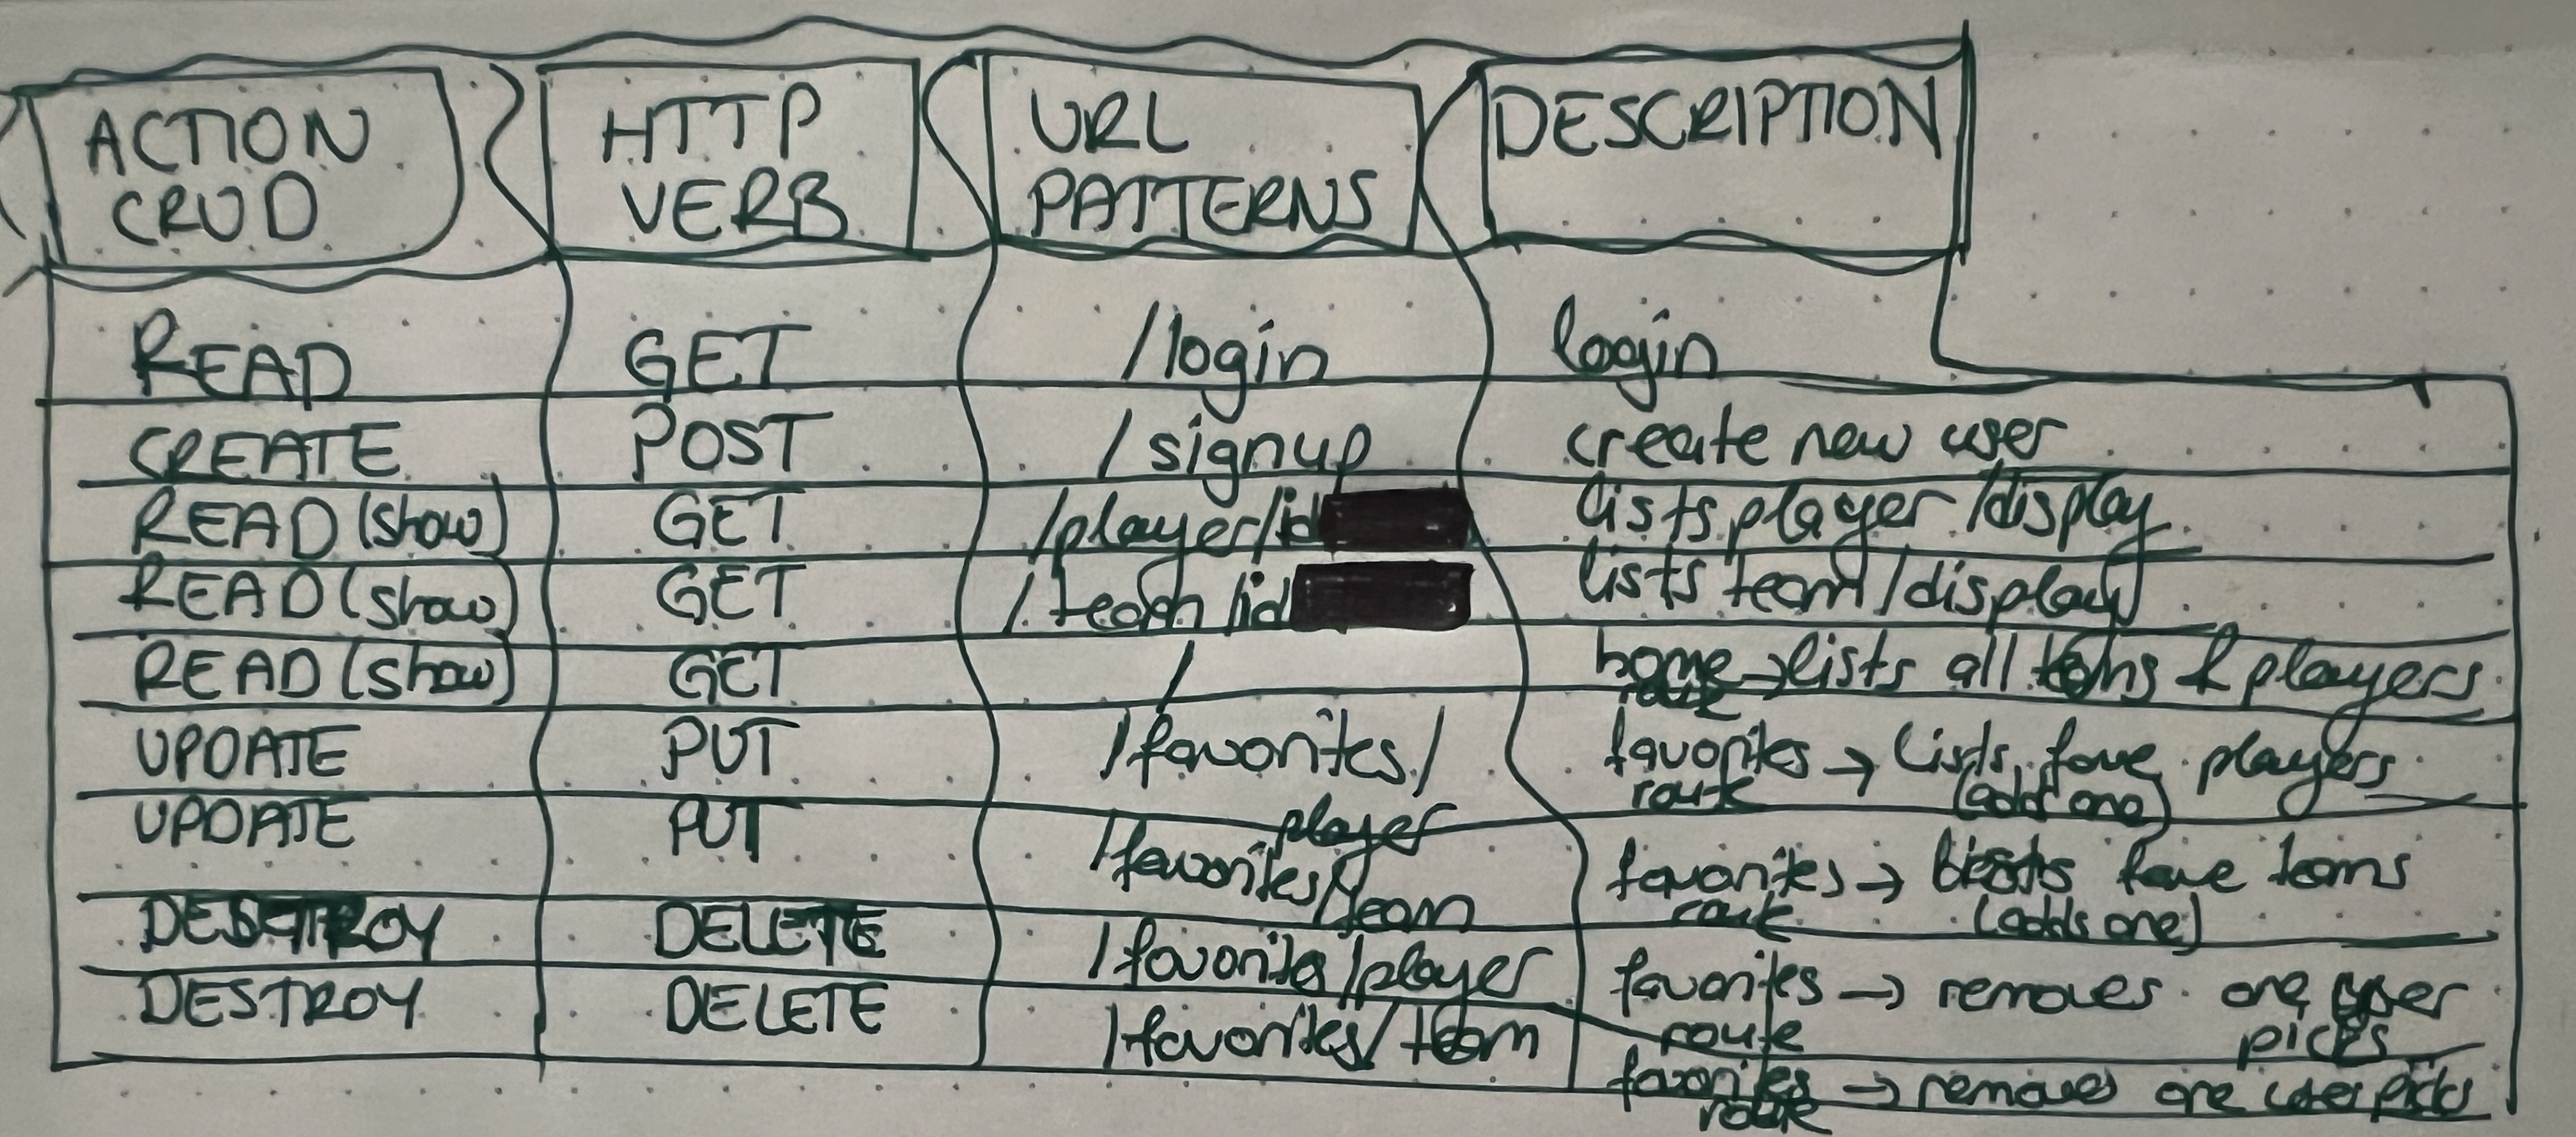 ACTION CRUD HTTP VERB URL PATTERNS DESCRIPTION
READ GET /login login
CREATE POST /signup create new user
READ (show) GET /player/id lists player/display
READ (show) GET /team/id lists team/display
READ (show) GET / home route → lists all teams & players
UPDATE PUT /favorites/player favorites route → lists fave players (add one)
UPDATE PUT /favorites/team favorites route → lists fave teams (adds one)
DESTROY DELETE /favorites/player favorites route → removes one user picks
DESTROY DELETE /favorites/team favorites route → removes one user picks